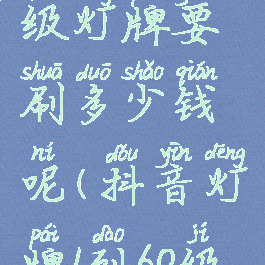 级灯牌要
shuā duō shǎo qián
刷多少钱
ní dǒu yīn dēng
呢(抖音灯
pái dào jí
牌(到60级